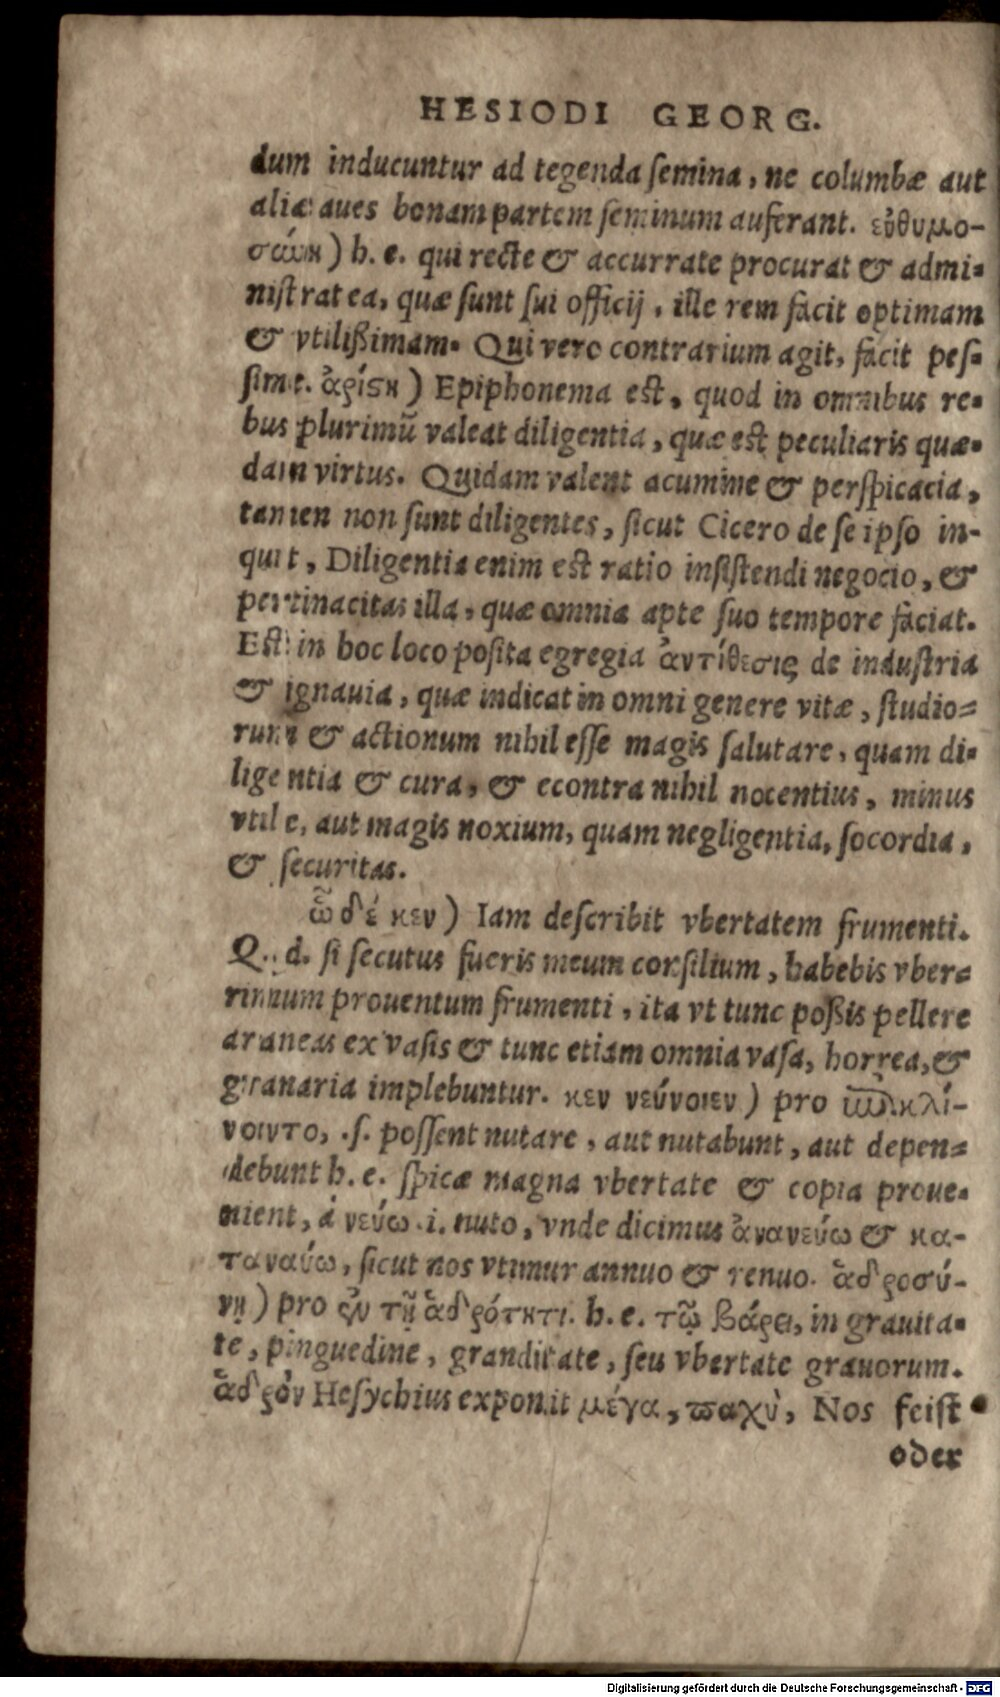 HESIODI GEORG.
dum inducuntur ad tegenda ſemina, ne columbæ aut
aliæ aues bonam partem ſeminum auferant. εὐθυμο-
σώνη) h. e. qui recte & accurrate procurat & admi-
niſtrat ea, quæ ſunt ſui officij, ille rem facit optimam
& vtilißimam. Qui vero contrarium agit, facit peſ-
ſime. ἀρίστη) Epiphonema eſt, quod in omnibus re-
bus plurimũ valeat diligentia, quæ eſt peculiaris quæ-
dam virtus. Quidam valent acumine & perſpicacia,
tamen non ſunt diligentes, ſicut Cicero de ſe ipſo in-
quit, Diligentia enim eſt ratio inſiſtendi negocio, &
pertinacitas illa, quæ omnia apte ſuo tempore faciat.
Eſt in hoc loco poſita egregia ἀντίθεσις de induſtria
& ignauia, quæ indicat in omni genere vitæ, ſtudio-
rum & actionum nihil eſſe magis ſalutare, quam di-
ligentia & cura, & econtra nihil nocentius, minus
vtile, aut magis noxium, quam negligentia, ſocordia,
& ſecuritas.
ὧδέ κεν) Iam deſcribit vbertatem frumenti.
Q. d. ſi ſecutus fueris meum conſilium, habebis vber-
rimum prouentum frumenti, ita vt tunc poßis pellere
araneas ex vaſis & tunc etiam omnia vaſa, horrea, &
granaria implebuntur. κεν νεύνοιεν) pro ἐπικλί-
νοιντο, .ſ. poſſent nutare, aut nutabunt, aut depen-
debunt h. e. ſpicæ magna vbertate & copia proue-
nient, à νεύω .i. nuto, vnde dicimus ἀνανεύω & κα-
ταναύω, ſicut nos vtimur annuo & renuo. ἁδροσύ-
νῃ) pro ἐν τῇ ἁδρότητι. h. e. τῷ βάρει, in grauita-
te, pinguedine, granditate, ſeu vbertate grauorum.
ἁδρὸν Heſychius exponit μέγα, παχὺ, Nos feiſt
oder
Digitalisierung gefördert durch die Deutsche Forschungsgemeinschaft - DFG